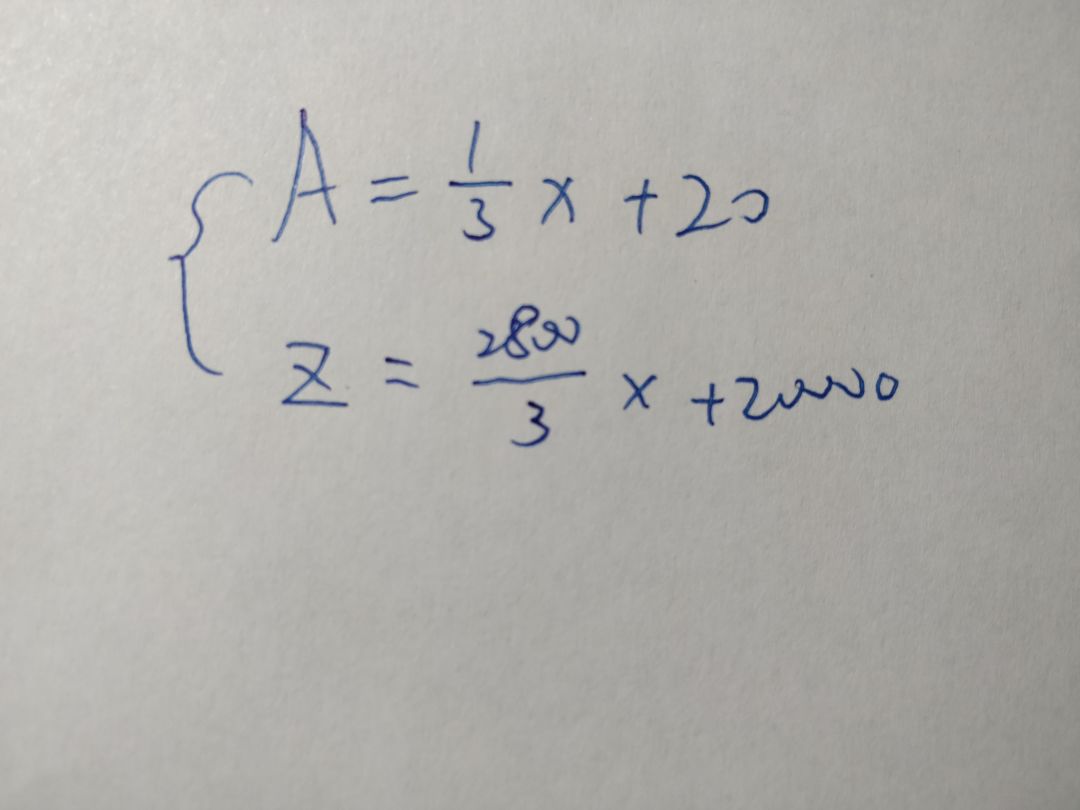 A = 1/3 x + 20
Z = 2800/3 x + 20000